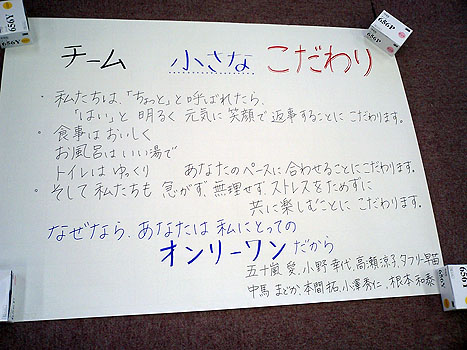 チーム 小さな こだわり
・ 私たちは、「ちょっと」と呼ばれたら、
「はい」と 明るく 元気に 笑顔で 返事することに こだわります。
・ 食事は おいしく
お風呂は いい湯で
トイレは ゆっくり あなたのペースに合わせることにこだわります。
・ そして 私たちも 急がず、無理せず ストレスをためずに
共に楽しむことに こだわります。
なぜなら、あなたは 私にとっての
オンリーワン だから
五十嵐 愛、小野 幸代、高瀬 涼子、タフリー早苗
中馬 まどか、本間 拓、小澤 秀仁、根本 和泰
686P
656T